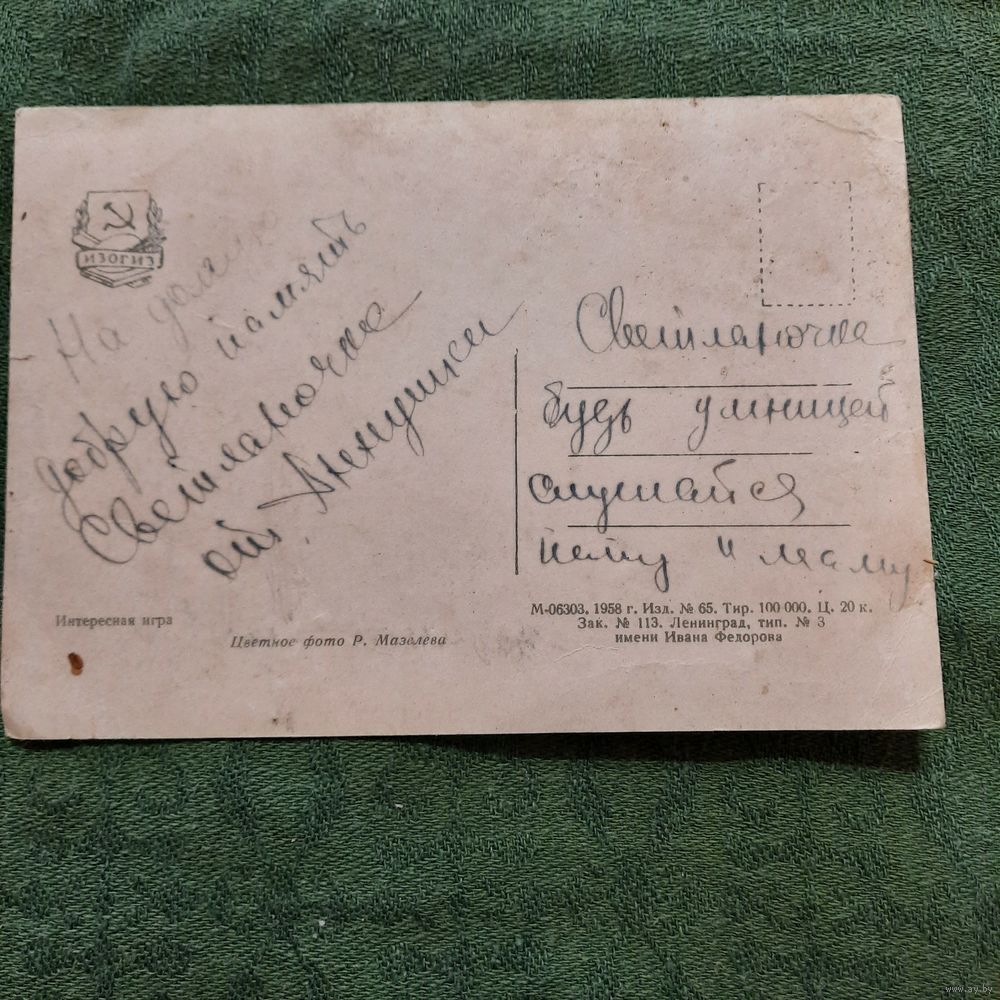 ИЗОГИЗ
На долгую
добрую память
Светланочке
от Аненушки
Светланочка
будь умницей
слушайся
папу и маму
Интересная игра
Цветное фото Р. Мазелева
М-06303. 1958 г. Изд. № 65. Тир. 100 000. Ц. 20 к.
Зак. № 113. Ленинград, тип. № 3
имени Ивана Федорова
www.ay.by